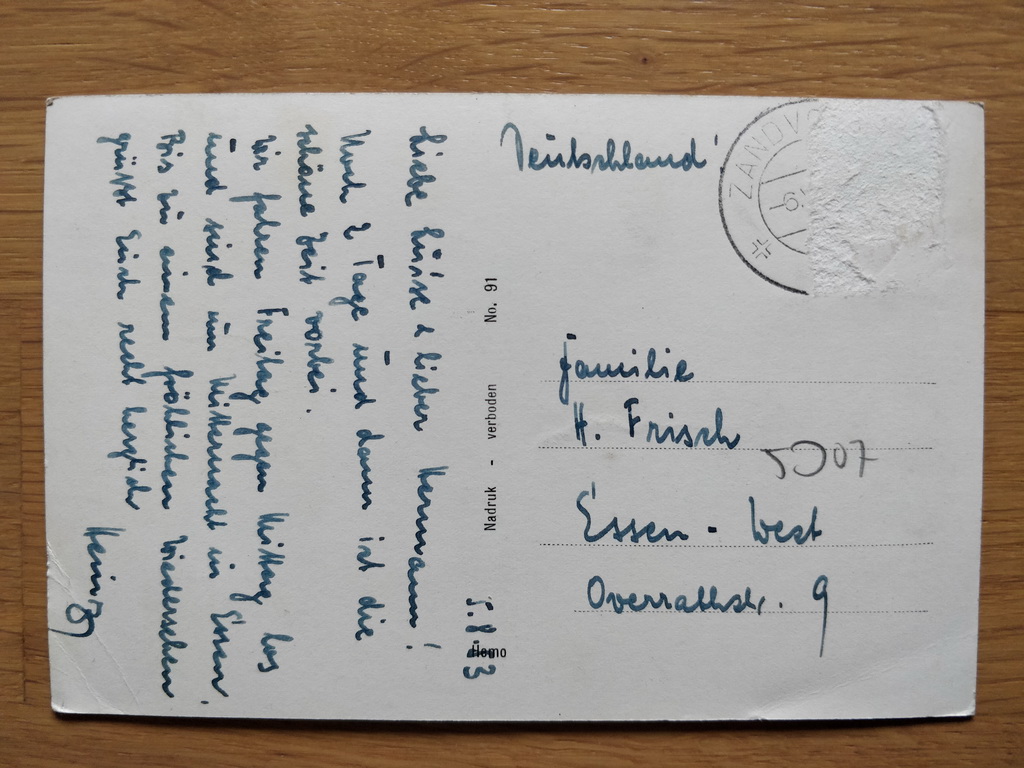 Liebe Luise & lieber Hermann!
Noch 2 Tage und dann ist die
schöne Zeit vorbei.
Wir fahren Freitag gegen Mittag los
und sind um Mitternacht in Essen.
Bis zu einem fröhlichen Wiedersehen
grüßt Euch recht herzlich
Heinz
Nadruk - verboden No. 91
Deutschland
ZANDVO
Familie
H. Frisch
5007
Essen-West
Overrathstr. 9